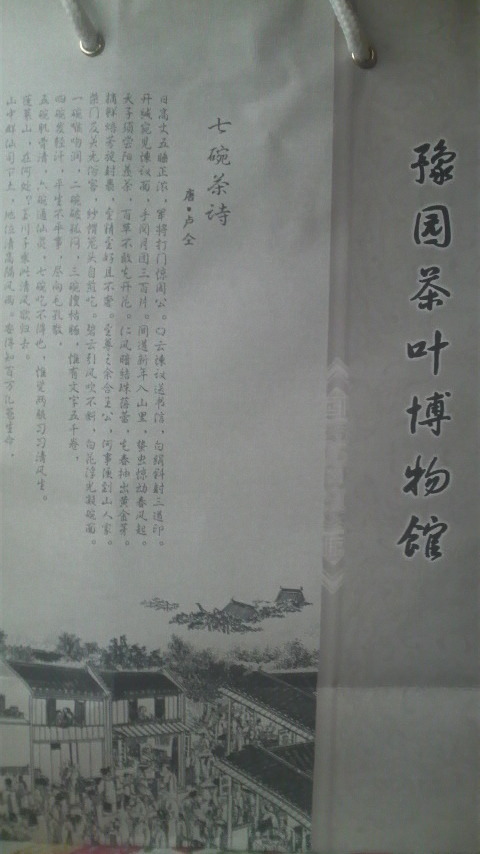 豫园茶叶博物馆
七碗茶诗
唐·卢仝
日高丈五睡正浓，军将打门惊周公。口云谏议送书信，白绢斜封三道印。
开缄宛见谏议面，手阅月团三百片。闻道新年入山里，蛰虫惊动春风起。
天子须尝阳羡茶，百草不敢先开花。仁风暗结珠蓓蕾，先春抽出黄金芽。
摘鲜焙芳旋封裹，至精至好且不奢。至尊之余合王公，何事便到山人家。
柴门反关无俗客，纱帽笼头自煎吃。碧云引风吹不断，白花浮光凝碗面。
一碗喉吻润，二碗破孤闷，三碗搜枯肠，惟有文字五千卷，
四碗发轻汗，平生不平事，尽向毛孔散，
五碗肌骨清，六碗通仙灵，七碗吃不得也，惟觉两腋习习清风生。
蓬莱山，在何处？玉川子乘此清风欲归去。
山中群仙司下土，地位清高隔风雨。安得知百万亿苍生命，